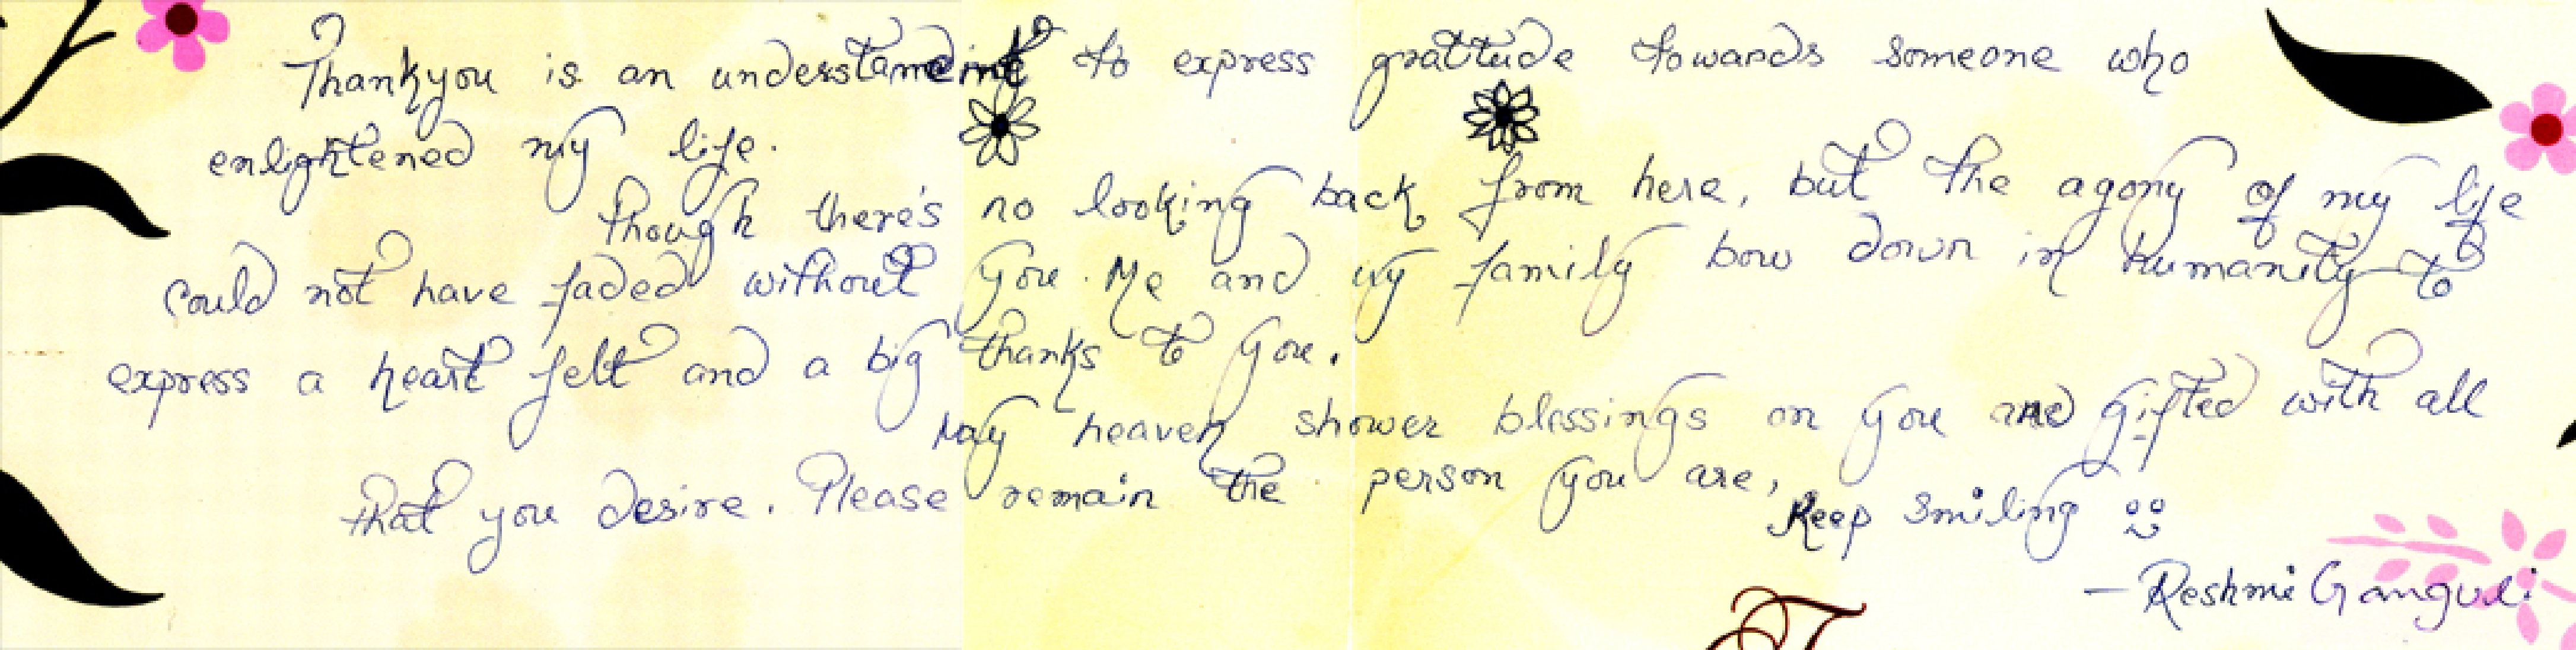 Thankyou is an to express gratitude towards someone who
enlightened my life.
Though there's no looking back from here, but the agony of my life
could not have faded without you. Me and my family bow down in humanity to
express a heart felt and a big thanks to you.
May heaven shower blessings on you and gifted with all
that you desire. Please remain the person you are,
Keep smiling
— Reshmi Ganguli